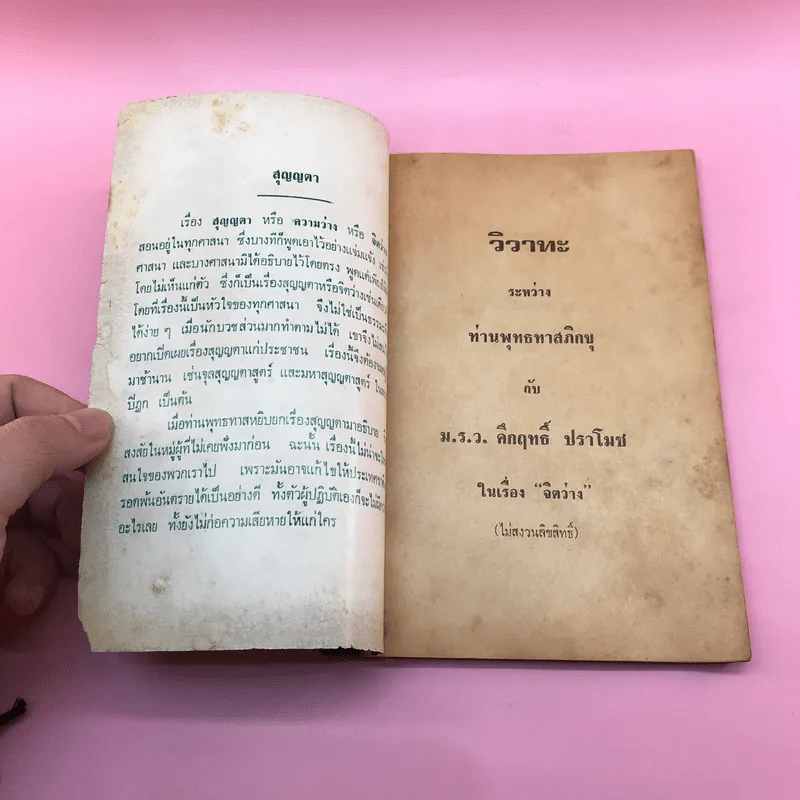 สุญญตา
เรื่อง สุญญตา หรือ ความว่าง หรือ
สอนอยู่ในทุกศาสนา ซึ่งบางทีก็พูดเอาไว้อย่างแจ่มแจ้ง
ศาสนา และบางศาสนามิได้อธิบายไว้โดยตรง พูดแต่เพียง
โดยไม่เห็นแก่ตัว ซึ่งก็เป็นเรื่องสุญญตาหรือจิตว่างเช่น
โดยที่เรื่องนี้เป็นหัวใจของทุกศาสนา จึงไม่ใช่เป็น
ได้ง่าย ๆ เมื่อนักบวชส่วนมากทำตามไม่ได้ เขาจึงไม่
อยากเปิดเผยเรื่องสุญญตาแก่ประชาชน เรื่องนี้จึงต้อง
มาช้านาน เช่นจุลสุญญตาสูตร์ และมหาสุญญตาสูตร์
ปิฎก เป็นต้น
เมื่อท่านพุทธทาสหยิบยกเรื่องสุญญตามาอธิบาย
สงสัยในหมู่ผู้ที่ไม่เคยฟังมาก่อน ฉะนั้น เรื่องนี้ไม่น่าจะ
สนใจของพวกเราไป เพราะมันอาจแก้ไขให้ประเทศชาติ
รอดพ้นอันตรายได้เป็นอย่างดี ทั้งตัวผู้ปฏิบัติเองก็จะไม่
อะไรเลย ทั้งยังไม่ก่อความเสียหายให้แก่ใคร
วิวาทะ
ระหว่าง
ท่านพุทธทาสภิกขุ
กับ
ม.ร.ว. คึกฤทธิ์ ปราโมช
ในเรื่อง “จิตว่าง”
(ไม่สงวนลิขสิทธิ์)